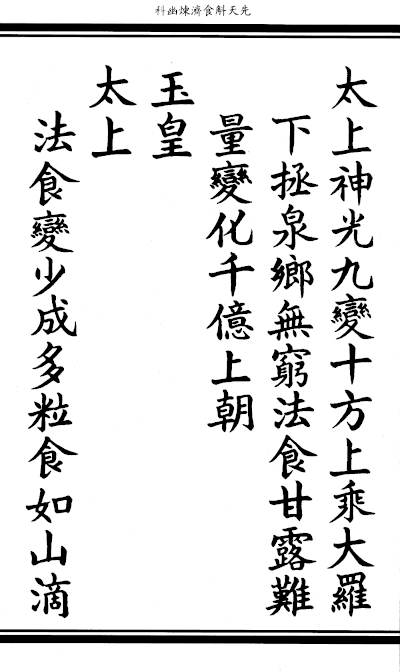 科幽煉濟食斛天先
太上神光九變十方上乘大羅
下拯泉鄉無窮法食甘露難
量變化千億上朝
玉皇
太上
法食變少成多粒食如山滴